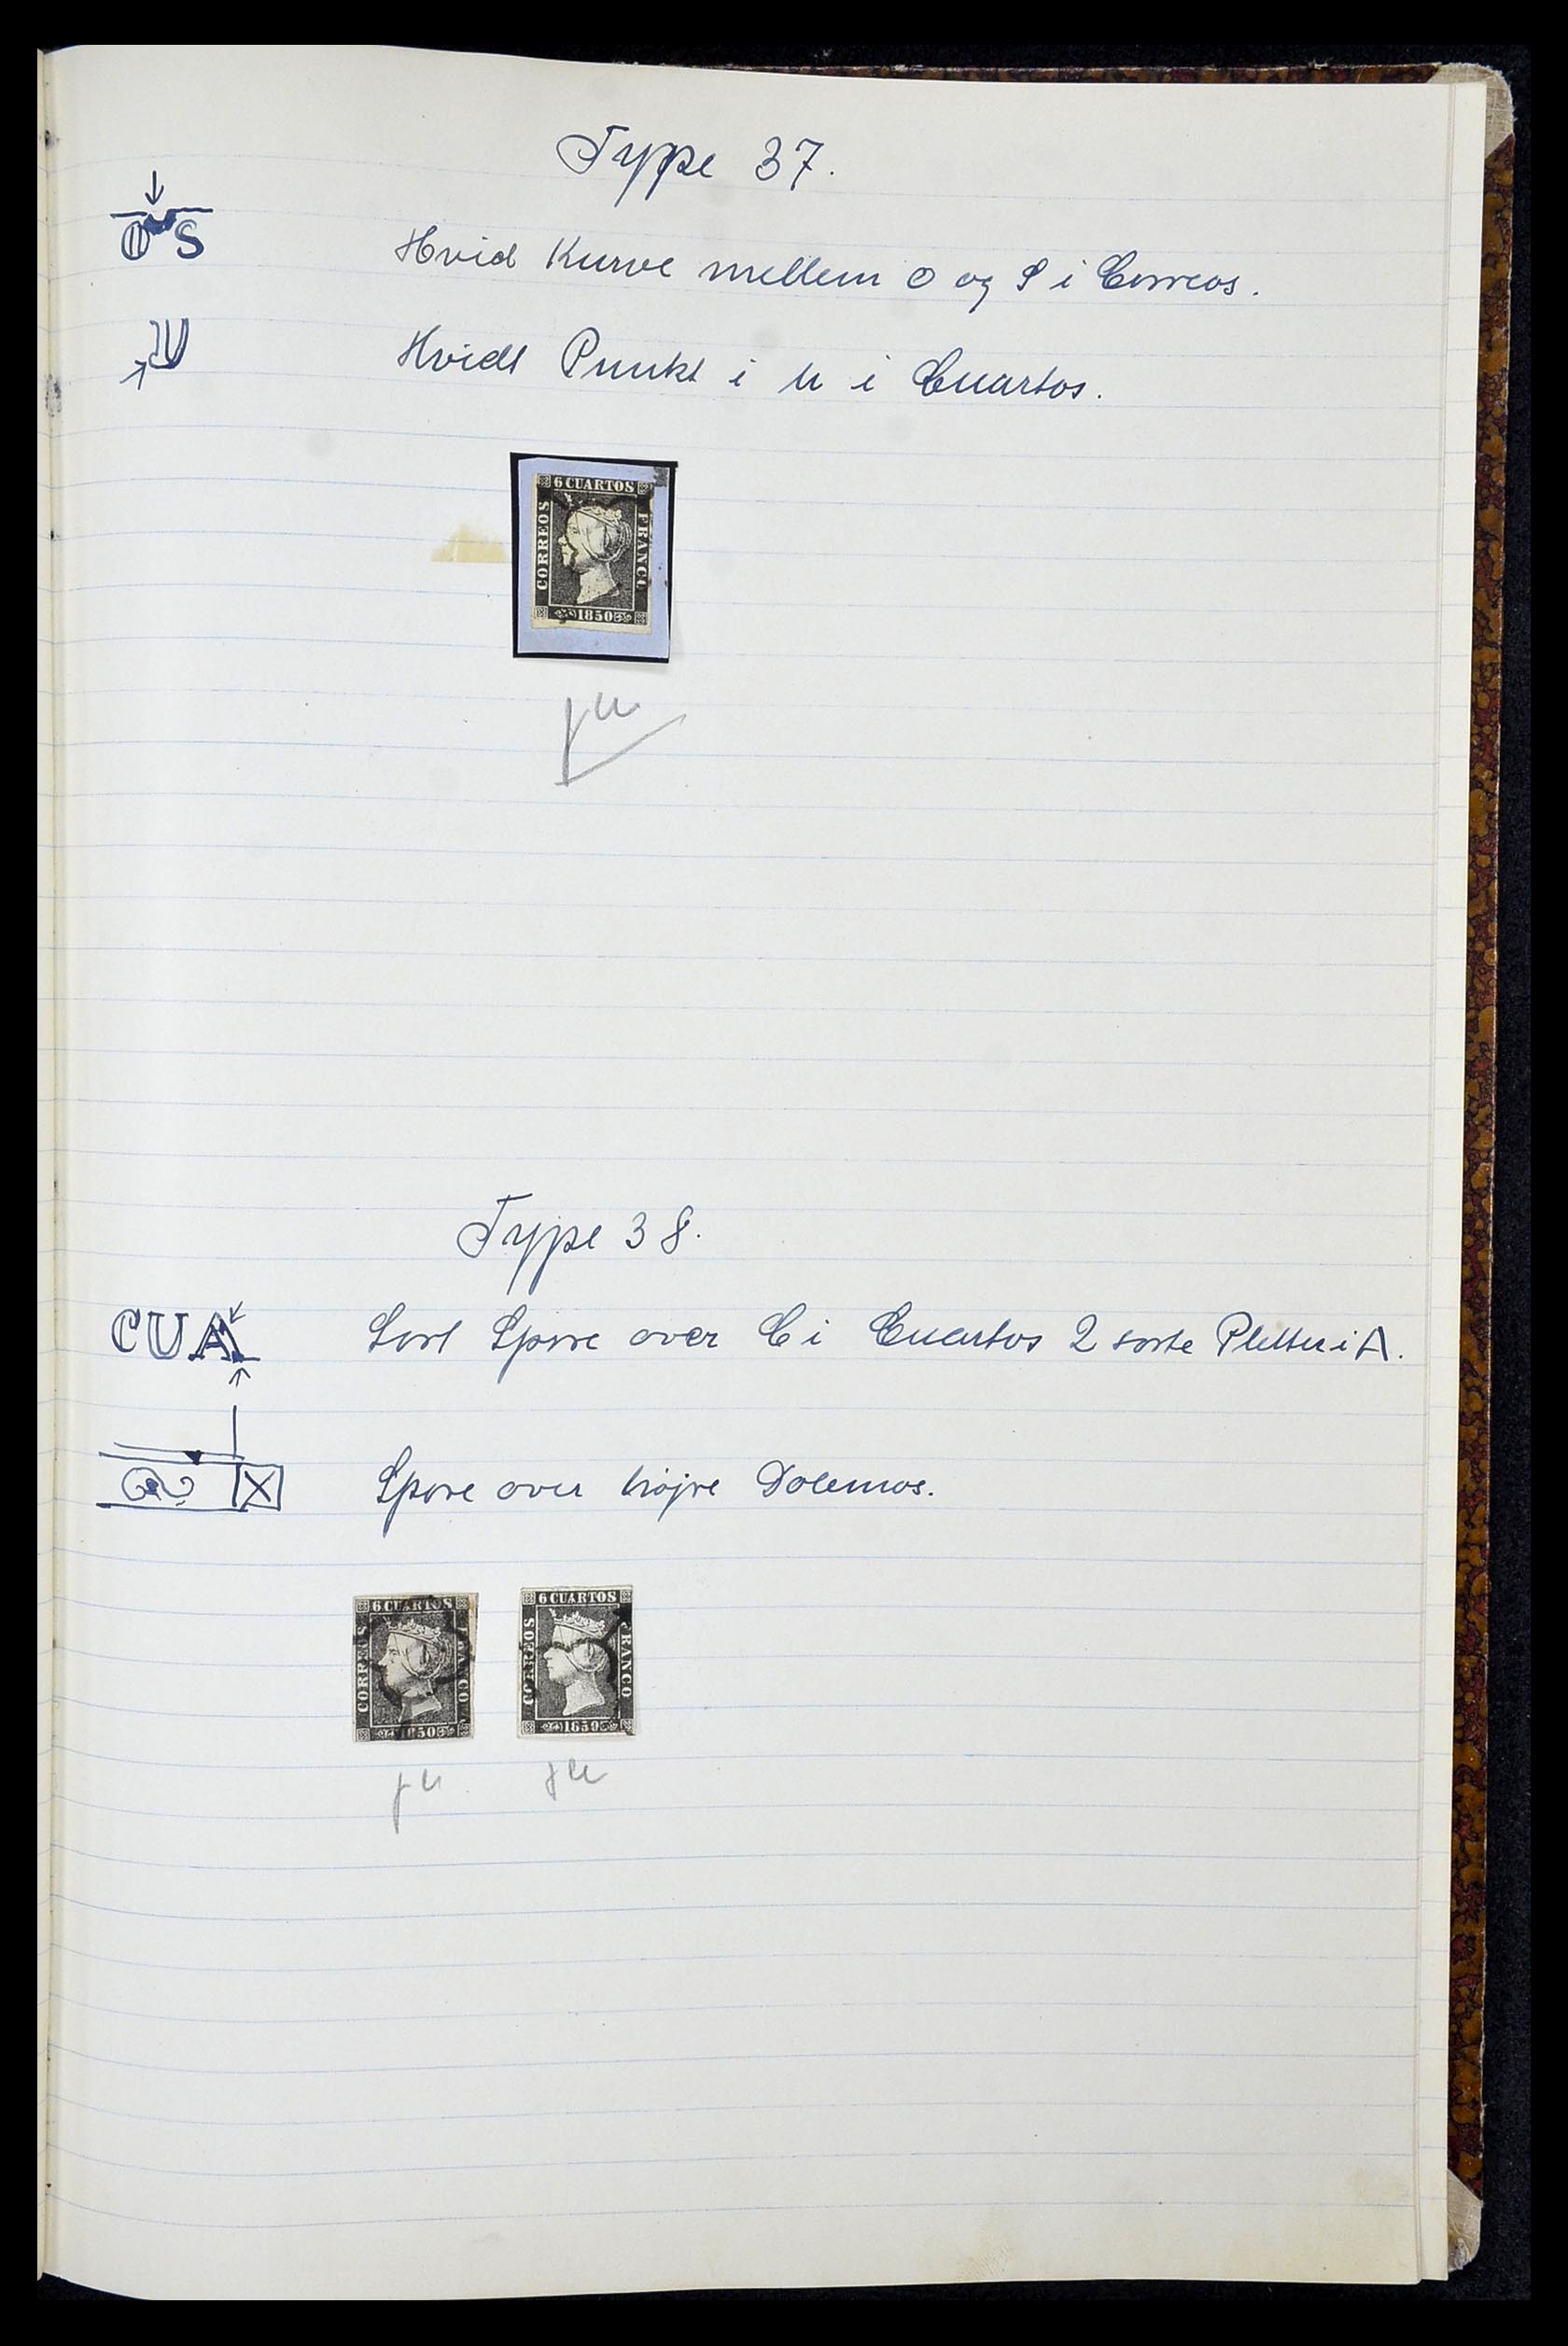 Type 37.
O S
Hvid Kurve mellem O og S i Correos.
U
Hvidt Punkt i U i Cuartos.
6 CUARTOS
CORREOS
FRANCO
1850
Type 38.
CUA
Sort Spore over C i Cuartos 2 sorte Pletter i A.
X
Spore over højre
6 CUARTOS
CORREOS
FRANCO
1850
6 CUARTOS
CORREOS
FRANCO
1850